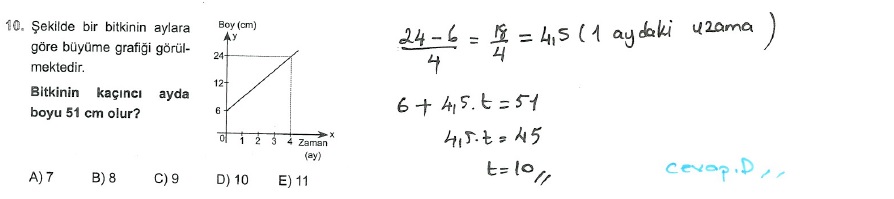 10. Şekilde bir bitkinin aylara
göre büyüme grafiği görül-
mektedir.
Bitkinin kaçıncı ayda
boyu 51 cm olur?
Boy (cm)
y
24
12
6
0 1 2 3 4 Zaman
x
(ay)
A) 7 B) 8 C) 9 D) 10 E) 11
24-6/4 = 18/4 = 4,5 (1 aydaki uzama)
6 + 4,5.t = 51
4,5.t = 45
t = 10,,
cevap.D,,